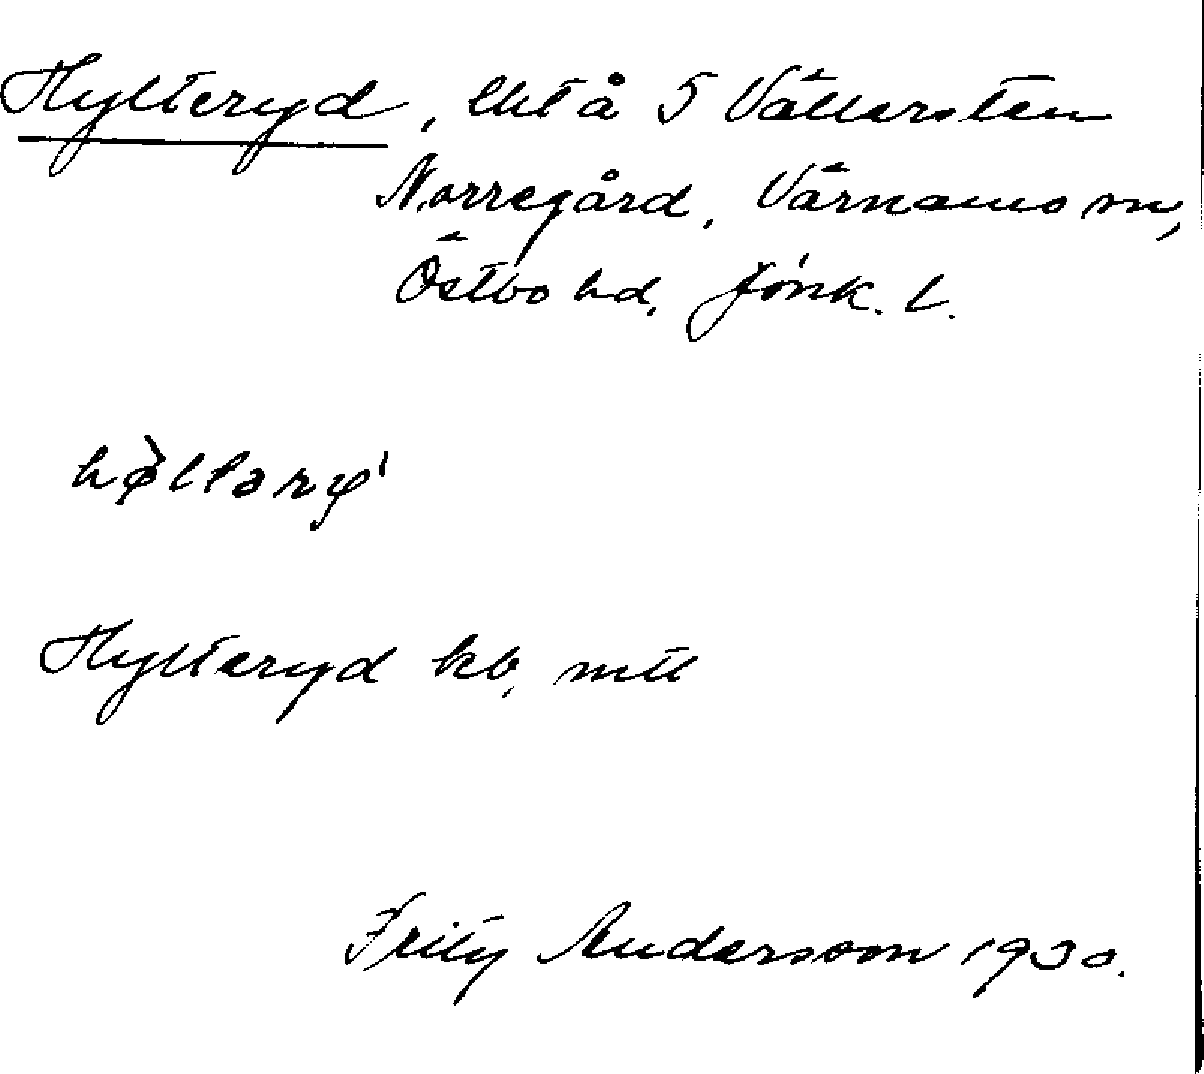 Hylteryd, lht å 5 Vällersten
Norregård, Värnamo sn,
Östbo hd, Jönk. l.
hø̀ltarφ'
Hylteryd kb, mtl
Frity Andersson 1930.